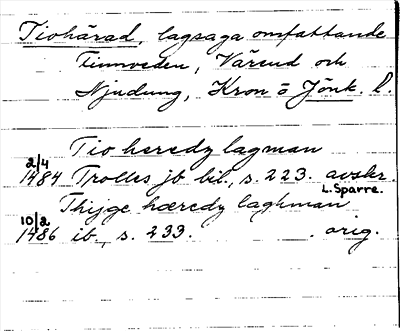 Tiohärad, lagsaga omfattande
Finnveden, Värend och
Njudung, Kron o Jönk. l.
Tio heredz lagman
2/4
1484 Trolles jb bil, s. 223. avskr.
L. Sparre.
Thijge hæredz laghman
10/2
1486 ib., s. 233. orig.